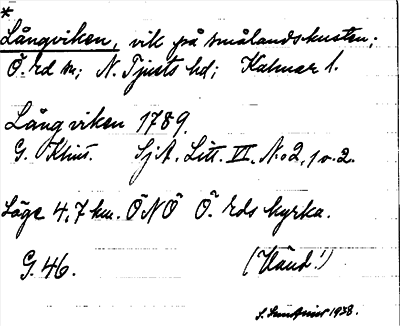 *
Långviken, vik på smålandskusten;
Ö. rd sn; N. Tjusts hd; Kalmar l.
Långviken 1789.
G. SjA. Litt. VI. No 2, 1 o. 2.
Läge 4,7 km. ÖNÖ Ö. rds kyrka.
G. 46. (Händ!)
1938.